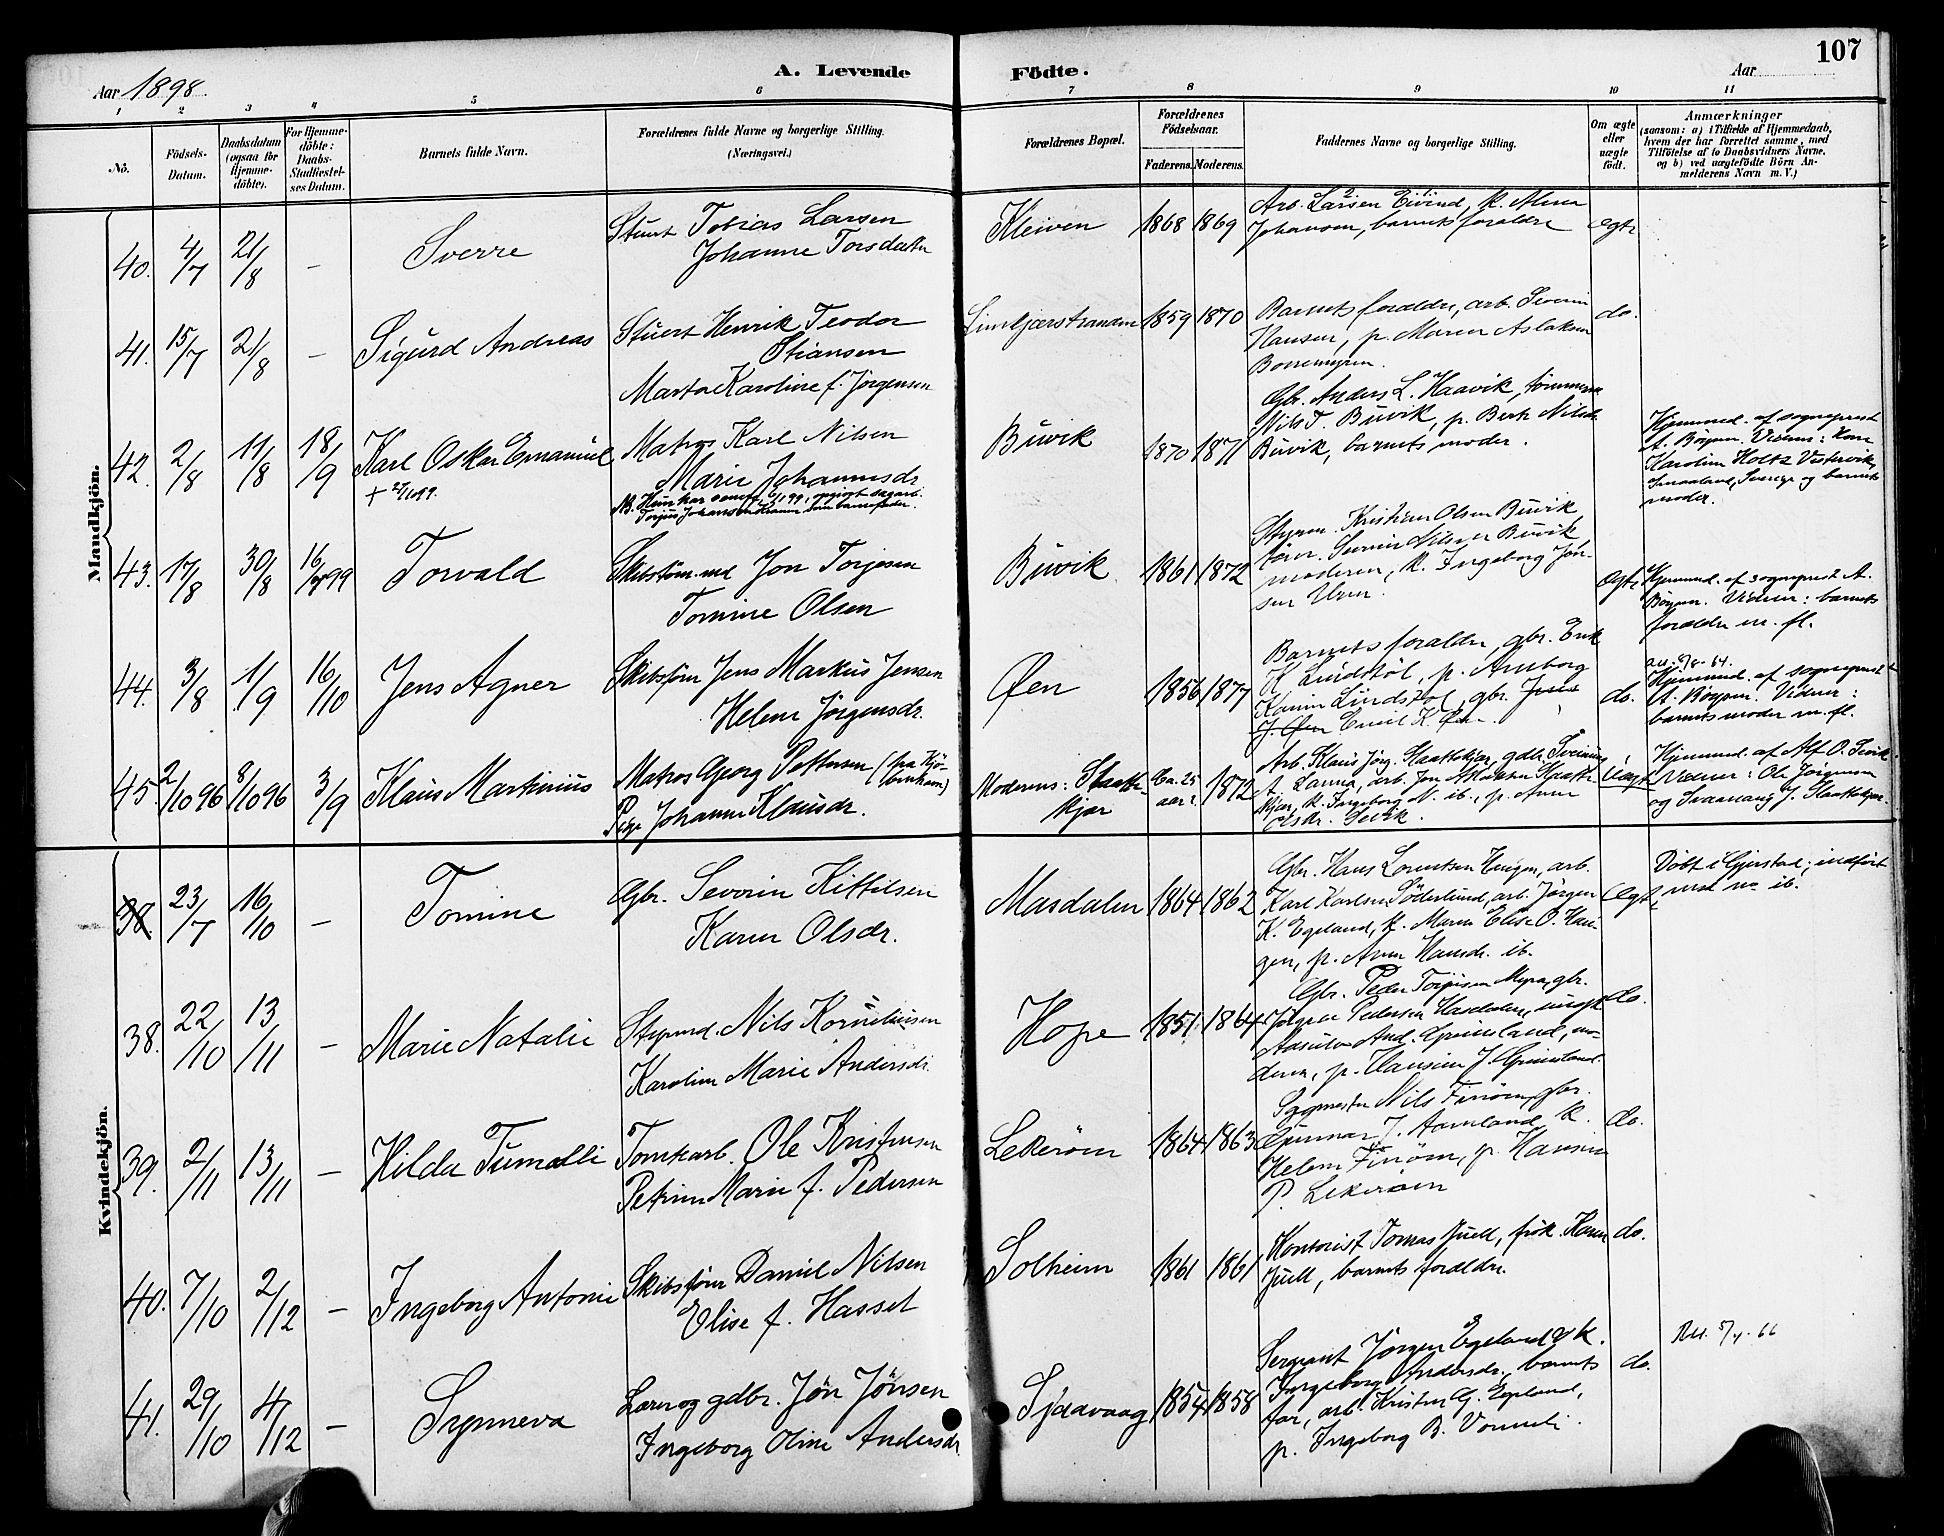 107
Aar 1898.
A. Levende Födte.
Aar
1 2 3 4 5 6 7 8 9 10 11
No.
Födsels-Datum.
Daabsdatum (ogsaa for Hjemme-döbte).
For Hjemme-döbte: Daabs-Stadfæstel-ses Datum.
Barnets fulde Navn.
Forældrenes fulde Navne og borgerlige Stilling. (Næringsvei.)
Forældrenes Bopæl.
Forældrenes Födselsaar.
Faderens. Moderens.
Faddernes Navne og borgerlige Stilling.
Om ægte eller uægte födt.
Anmærkninger
(saasom: a) i Tilfælde af Hjemmedaab, hvem der har forrettet samme, med Tilföielse af to Daabsvidners Navne, og b) ved uægtefödte Börn An-melderens Navn m. V.)
Mandkjön.
40. 4/7 21/8 – Sverre
Stuert Tobias Larsen
Johanne Torsdatter
Kleiven 1868 1869
Arb. Larsen Eivind, k.
Johansen, barnets forældre
ægte
41. 15/7 21/8 – Sigurd Andreas
Stuert Henrik Teodor
Stiansen
Marta Karoline f. Jörgensen
1859 1870
Barnets forældre, arb. Severin
Hansen, p. Maren Aslaksen
do.
42. 2/8 11/8 18/9 Karl Oskar Emanuel
Matros Karl Nilsen
Marie Johannesdr.
Buvik 1870 1871
Gbr. Anders L. Haavik, tömmerm.
Nils T. Buvik, p. Berte Nilsdr.
Buvik, barnets moder.
Hjemmed. af sogneprest
A. Börsen. Vidner: Kone
Karoline Holtz Vestervik,
Smaaland, Sverige og barnets
moder.
43. 17/8 30/8 Torvald
Skibstöm.md Jon Torjesen
Tomine Olsen
Buvik 1861 1872
Styrm. Kristian Olsen Buvik,
tömr. Severin Nilsen Buvik
moderen, k. Ingeborg Jon-
sen
ægte
Hjemmed. af sogneprest A.
Vidner: barnets
forældre m. fl.
44. 3/8 1/9 16/10 Jens Agner
Skibsförer Jens Markus Jensen
Helene Jörgensdr.
Öen 1856 1877
Barnets forældre, gbr. Erik
K. Lindstöl, p. Aneborg
Lindstöl, gbr. Jens
J. Öen Emil K. Öen.
do.
Hjemmed. af sogneprest
Vidner:
barnets moder m. fl.
45. 2/10 96 8/10 96 3/9 Klaus Martinius
Matros Georg Pettersen (fra Kjö-
benhavn)
Pige Johanne Klausdr.
Moderens: Slaatte-
kjær
Ca. 25
aar 1872
Arb. Klaus Jörg. Slaattekjær,
uægte
Hjemmed. af Alf O.
Vidner: Ole Jörgensen
og J. Slaattekjær.
Kvindekjön.
38 23/7 16/10 – Tomine
Gbr. Severin Kittilsen
Karen Olsdr.
Masdalen 1864 1862
Gbr. Hans Lorentsen Haugen, arb.
Karl Karlsen Söderlund, arb. Jörgen
K. Egeland, k. Maren Elise O. Hau-
gen, p. Anne Hansdr. ib.
ægte
Döbt i Gjerstad; indfört
ib.
38. 22/10 13/11 – Marie Natalie
Styrmd. Nils Korneliussen
Karoline Marie Andersdr.
Hope 1851 1864
Gbr. Peder Torjusen Myra, gbr.
Jörgen Pedersen Masdalen, ungk.
And. Grimsland, mo-
deren, p. Hansine J. Grimsland.
do.
39. 2/11 13/11 – Hilda
Tomtearb. Ole Kristensen
Petrine Marie f. Pedersen
Lekeröen 1864 1863
Nils Finöen, gbr.
Gunnar J. Aamland, k.
Helene Finöen, p. Hansine
P. Lekeröen
do.
40. 7/10 2/12 – Ingeborg Antonie
Skibsförer Daniel Nilsen
Elise f. Hassel
Solheim 1861 1861
Kontorist Tomas Juell, frök. Karen
Juell, barnets forældre.
do.
41. 29/10 4/12 – Synneva
og gdbr. Jön Jönsen
Ingeborg Oline Andersdr.
Sjaavaag 1854 1858
Sergeant Jörgen Egeland, k.
Ingeborg Andersdr., barnets
far, arb. Kristen G. Egeland,
p. Ingeborg B. Vormeli.
do.